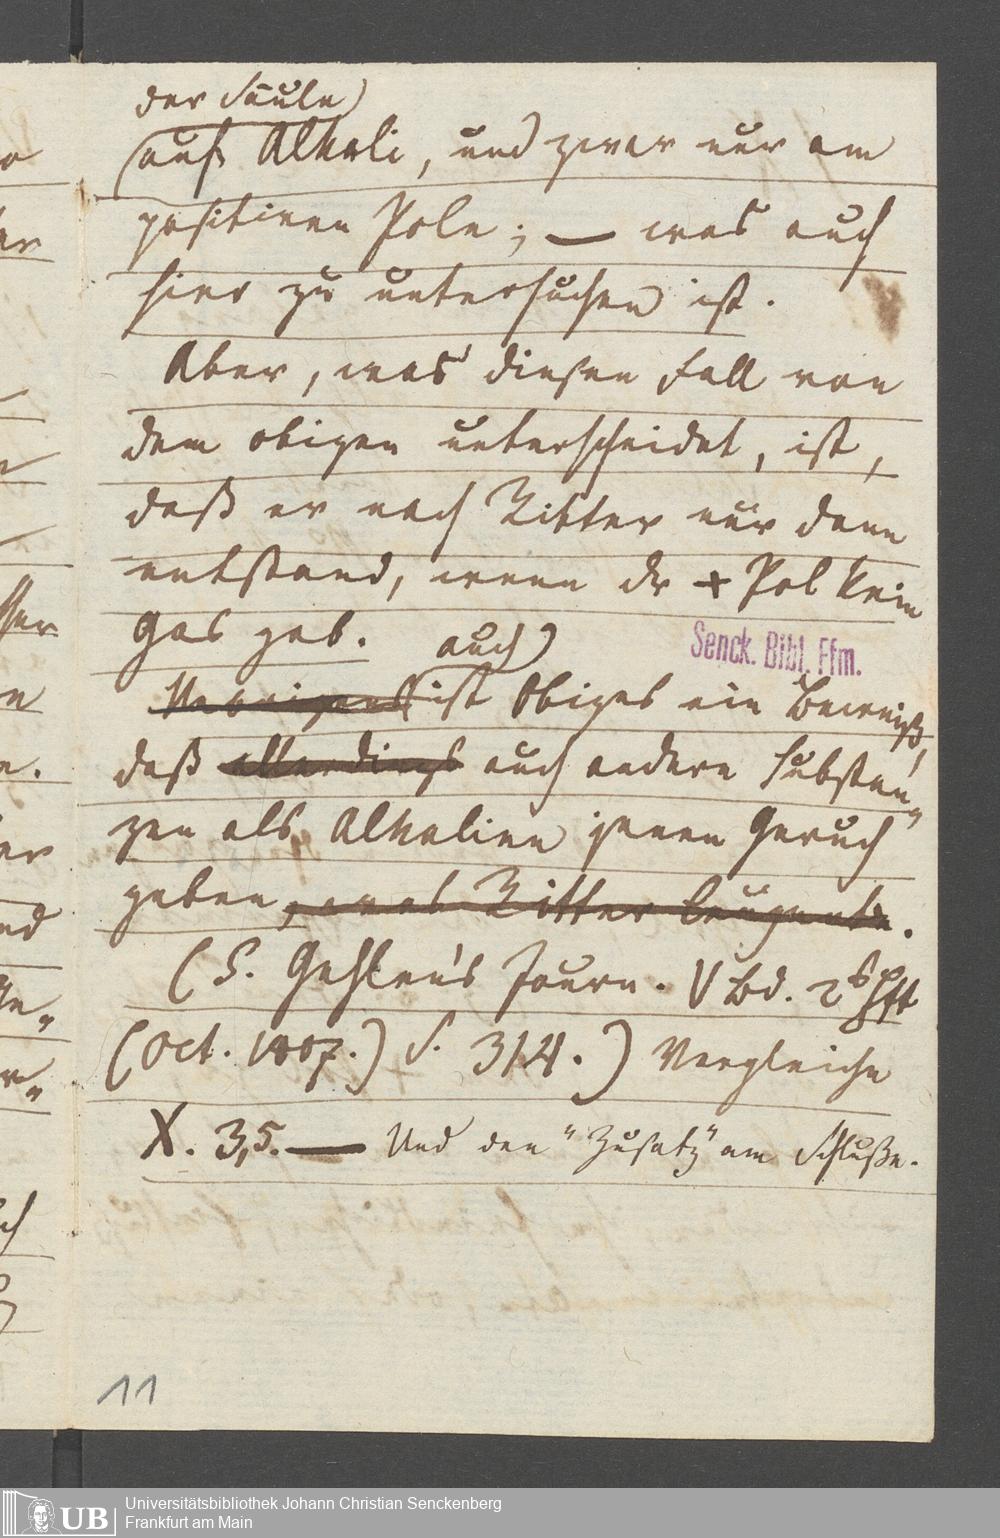 der Säule)
(auf Alkali, und zwar nur am
positiven Pole; — was auch
hier zu untersuchen ist.
Aber, was diesen Fall von
dem obigen unterscheidet, ist,
daß er nach Ritter nur dann
entstand, wenn dr + Pol kein
Gas gab. auch)
Senck. Bibl. Ffm.
Uebrigens (ist Obiges ein Beweiß,
daß allerdings auch andere Substan„
zen als Alkalien jenen Geruch
geben, was Ritter leugnete.
(S. Gehlen's Journ. V Bd. 2s Hft
(Oct. 1807.) S. 314.) Vergleiche
X. 3,5. — Und den "Zusatz" am Schluße.
11
UB
Universitätsbibliothek Johann Christian Senckenberg
Frankfurt am Main